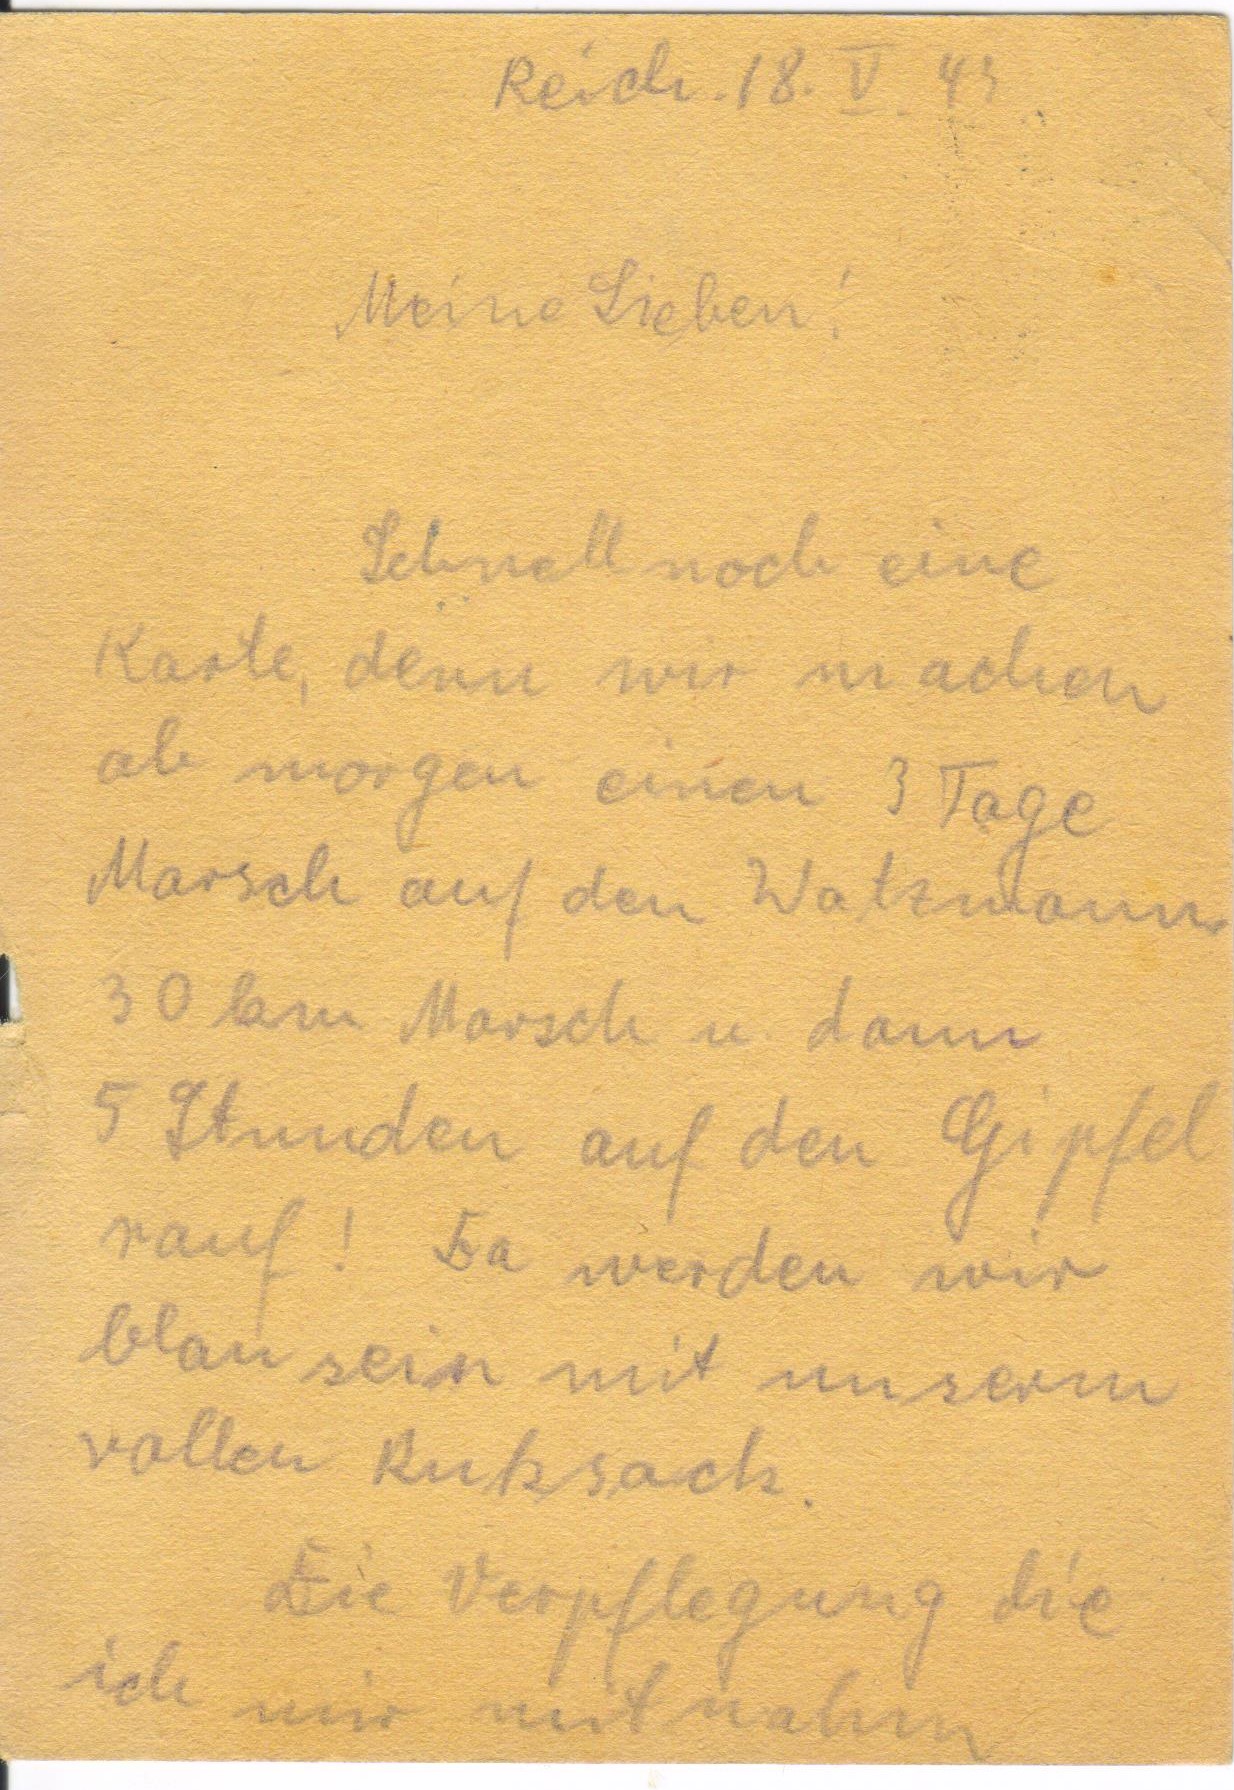 Reich. 18. V. 43.
Meine Lieben!
Schnell noch eine
Karte, denn wir machen
ab morgen einen 3 Tage
Marsch auf den Watzmann.
30 km Marsch u. dann
5 Stunden auf den Gipfel
rauf! Da werden wir
blau sein mit unserm
vollen Ruksack.
Die Verpflegung die
ich mir mitnahm